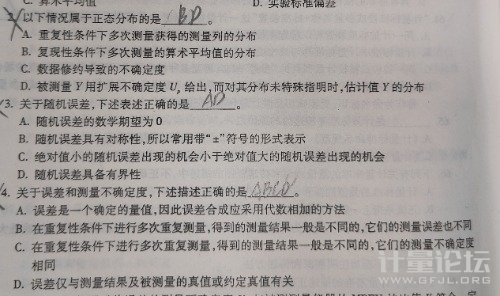 C. 算术平均值 D. 实验标准偏差
2. 以下情况属于正态分布的是 BD 。
A. 重复性条件下多次测量获得的测量列的分布
B. 复现性条件下多次测量的算术平均值的分布
C. 数据修约导致的不确定度
D. 被测量 Y 用扩展不确定度 Up 给出,而对其分布未特殊指明时,估计值 Y 的分布
3. 关于随机误差,下述表述正确的是 AD 。
A. 随机误差的数学期望为 0
B. 随机误差具有对称性,所以常用带“±”符号的形式表示
C. 绝对值小的随机误差出现的机会小于绝对值大的随机误差出现的机会
D. 随机误差具备有界性
4. 关于误差和测量不确定度,下述描述正确的是 ABCD 。
A. 误差是一个确定的量值,因此误差合成应采用代数相加的方法
B. 在重复性条件下进行多次重复测量,得到的测量结果一般是不同的,它们的测量误差也不同
C. 在重复性条件下进行多次重复测量,得到的测量结果一般是不同的,它们的测量不确定度
相同
D. 误差仅与测量结果及被测量的真值或约定真值有关
计量论坛
WWW.GFJL.ORG